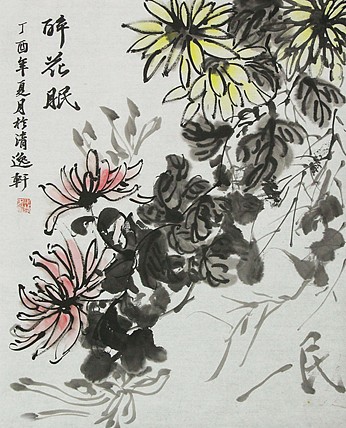 醉花眠
丁酉年夏月於清逸軒
一民